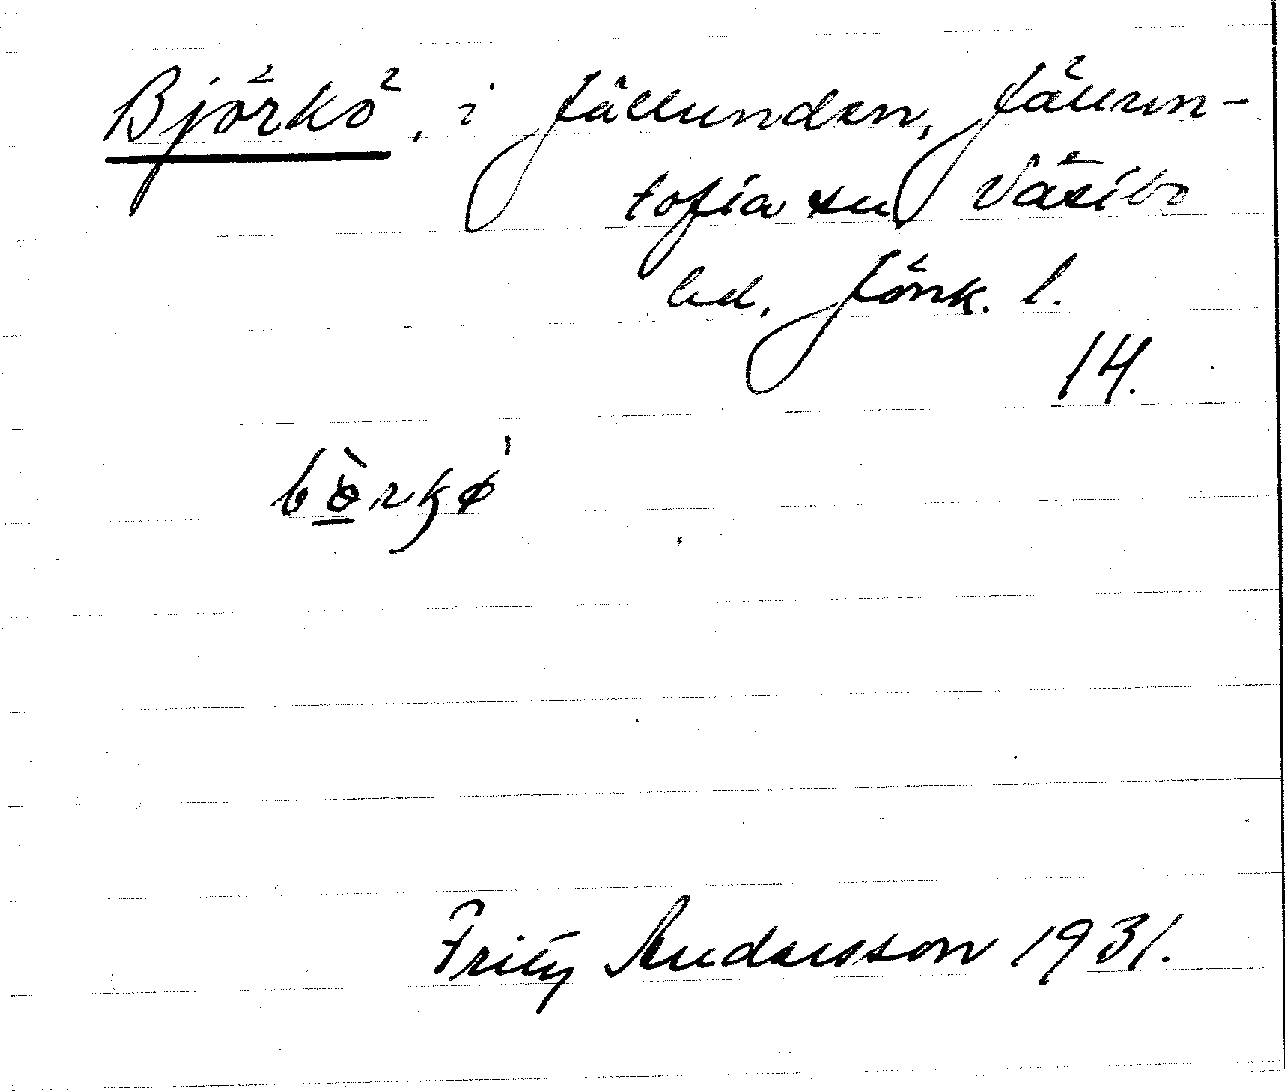 Björkö, i Jällunden, Jällun-
tofta sn Västbo
hd, Jönk. l.
14.
bö̀rkø'
Fritz Andersson 1931.